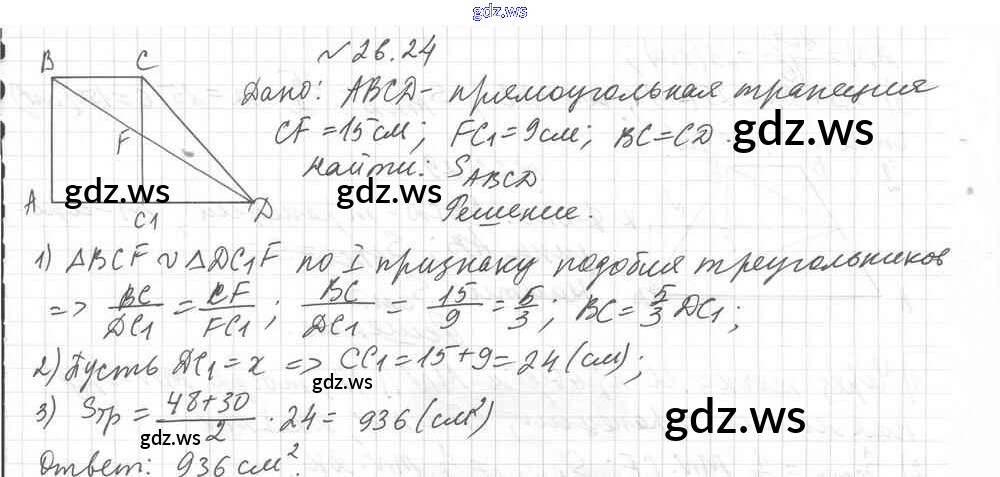 gdz.ws
№ 26.24
B C
Дано: ABCD - прямоугольная трапеция
CF = 15 см; FC1 = 9 см; BC = CD.
gdz.ws
F
Найти: SABCD
gdz.ws gdz.ws
A C1 D
Решение.
1) ΔBCF ∾ ΔDC1F по I признаку подобия треугольников
=> BC/DC1 = CF/FC1; BC/DC1 = 15/9 = 5/3; BC = 5/3 DC1;
2) Пусть DC1 = x => CC1 = 15 + 9 = 24 (см);
gdz.ws
3) Sтр = 48+30/2 · 24 = 936 (см²)
gdz.ws
gdz.ws
Ответ: 936 см².